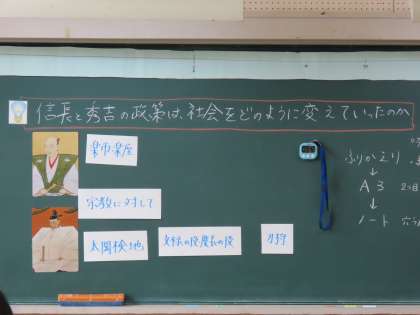 信長と秀吉の政策は、社会をどのように変えていったのか
楽市楽座
宗教に対して
太閤検地
文禄の役慶長の役
刀狩
ふりかえり
↓
A3
↓
ノート